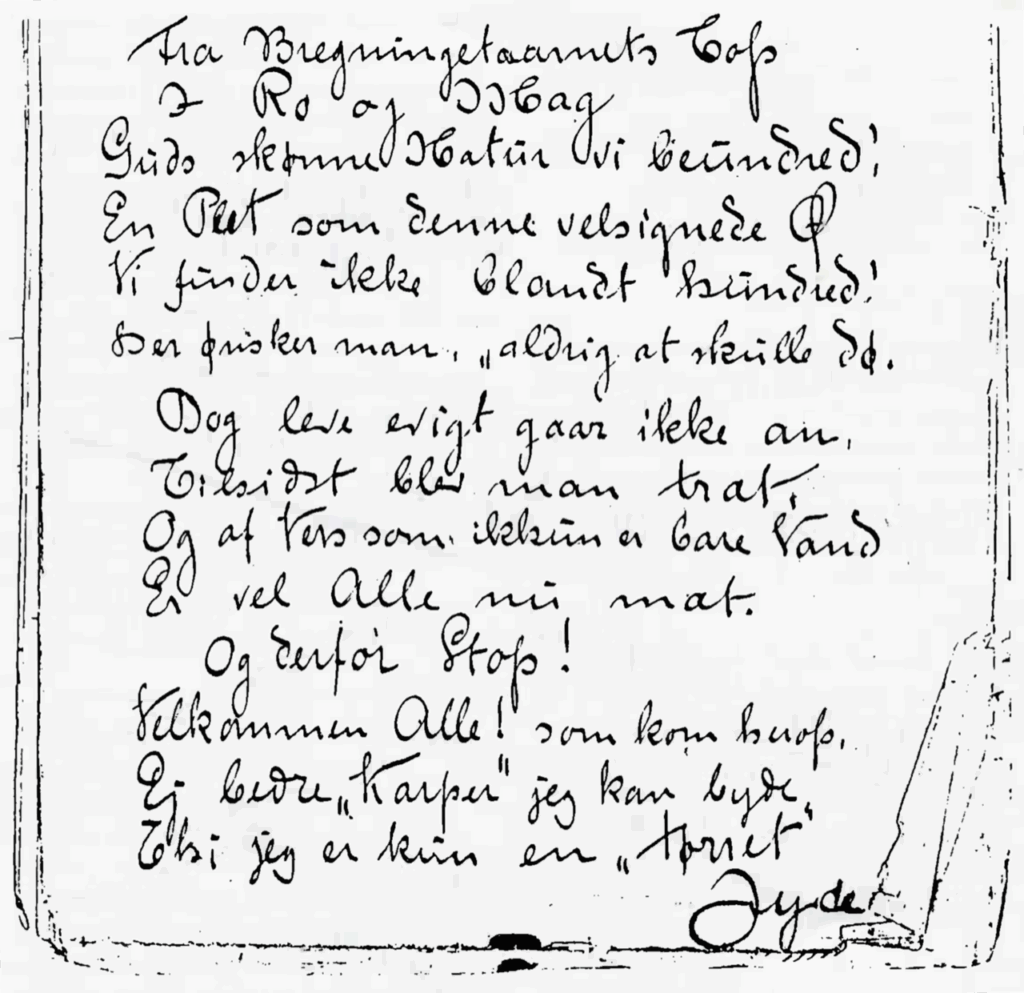 Fra Bregningetaarnets Top
I Ro og Mag
Guds skjønne Natur vi beundred',
En Plet som denne velsignede Ø
Vi finder ikke blandt hundred'.
Her ønsker man, „aldrig at skulle dø.
Dog leve evigt gaar ikke an,
Tilsidst blev man træt,
Og af Vers som ikkun er bare Vand
Er vel Alle nu mæt.
Og derfor Stop!
Velkommen Alle! som kom herop,
Ej bedre „Karper" jeg kan byde,
Thi jeg er kun en „tørret"
Jyde